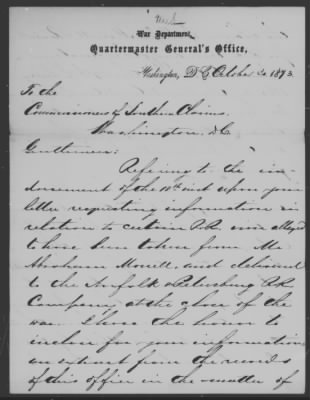 War Department,
Quartermaster General's Office,
Washington, D.C. October 1873.
To the
Commissioners of Southern Claims,
Washington, D.C.
Gentlemen:
Refering to the in-
dorsement of the inst upon your
letter requesting information in
relation to certain R.R. iron alleged
to have been taken from Mr
Abraham and delivered
to the Norfolk & Petersburg R.R.
Company, at the close of the
war. I have the honor to
inclose for your information,
an extract from the records
of this office in the matter of